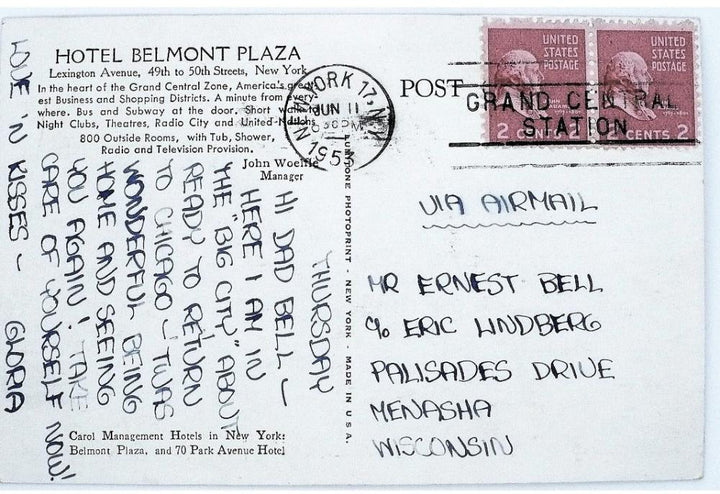 HOTEL BELMONT PLAZA
Lexington Avenue, 49th to 50th Streets, New York
In the heart of the Grand Central Zone, America's great-
est Business and Shopping Districts. A minute from every
where. Bus and Subway at the door. Short walk to
Night Clubs, Theatres, Radio City and United Nations
800 Outside Rooms, with Tub, Shower,
Radio and Television Provision.
John Woelfle
Manager
THURSDAY
HI DAD BELL —
HERE I AM IN
THE "BIG CITY" ABOUT
READY TO RETURN
TO CHICAGO — 'TWAS
WONDERFUL BEING
HOME AND SEEING
YOU AGAIN! TAKE
CARE OF YOURSELF NOW!
LOVE 'N KISSES — GLORIA
Carol Management Hotels in New York:
Belmont Plaza, and 70 Park Avenue Hotel
PHOTOPRINT - NEW YORK - MADE IN U.S.A.
NEW YORK 17, N.Y.
JUN 11
1953
POST
GRAND CENTRAL
STATION
UNITED
STATES
POSTAGE
2 CENTS
UNITED
STATES
POSTAGE
CENTS 2
VIA AIRMAIL
MR ERNEST BELL
c/o ERIC LINDBERG
PALISADES DRIVE
MENASHA
WISCONSIN